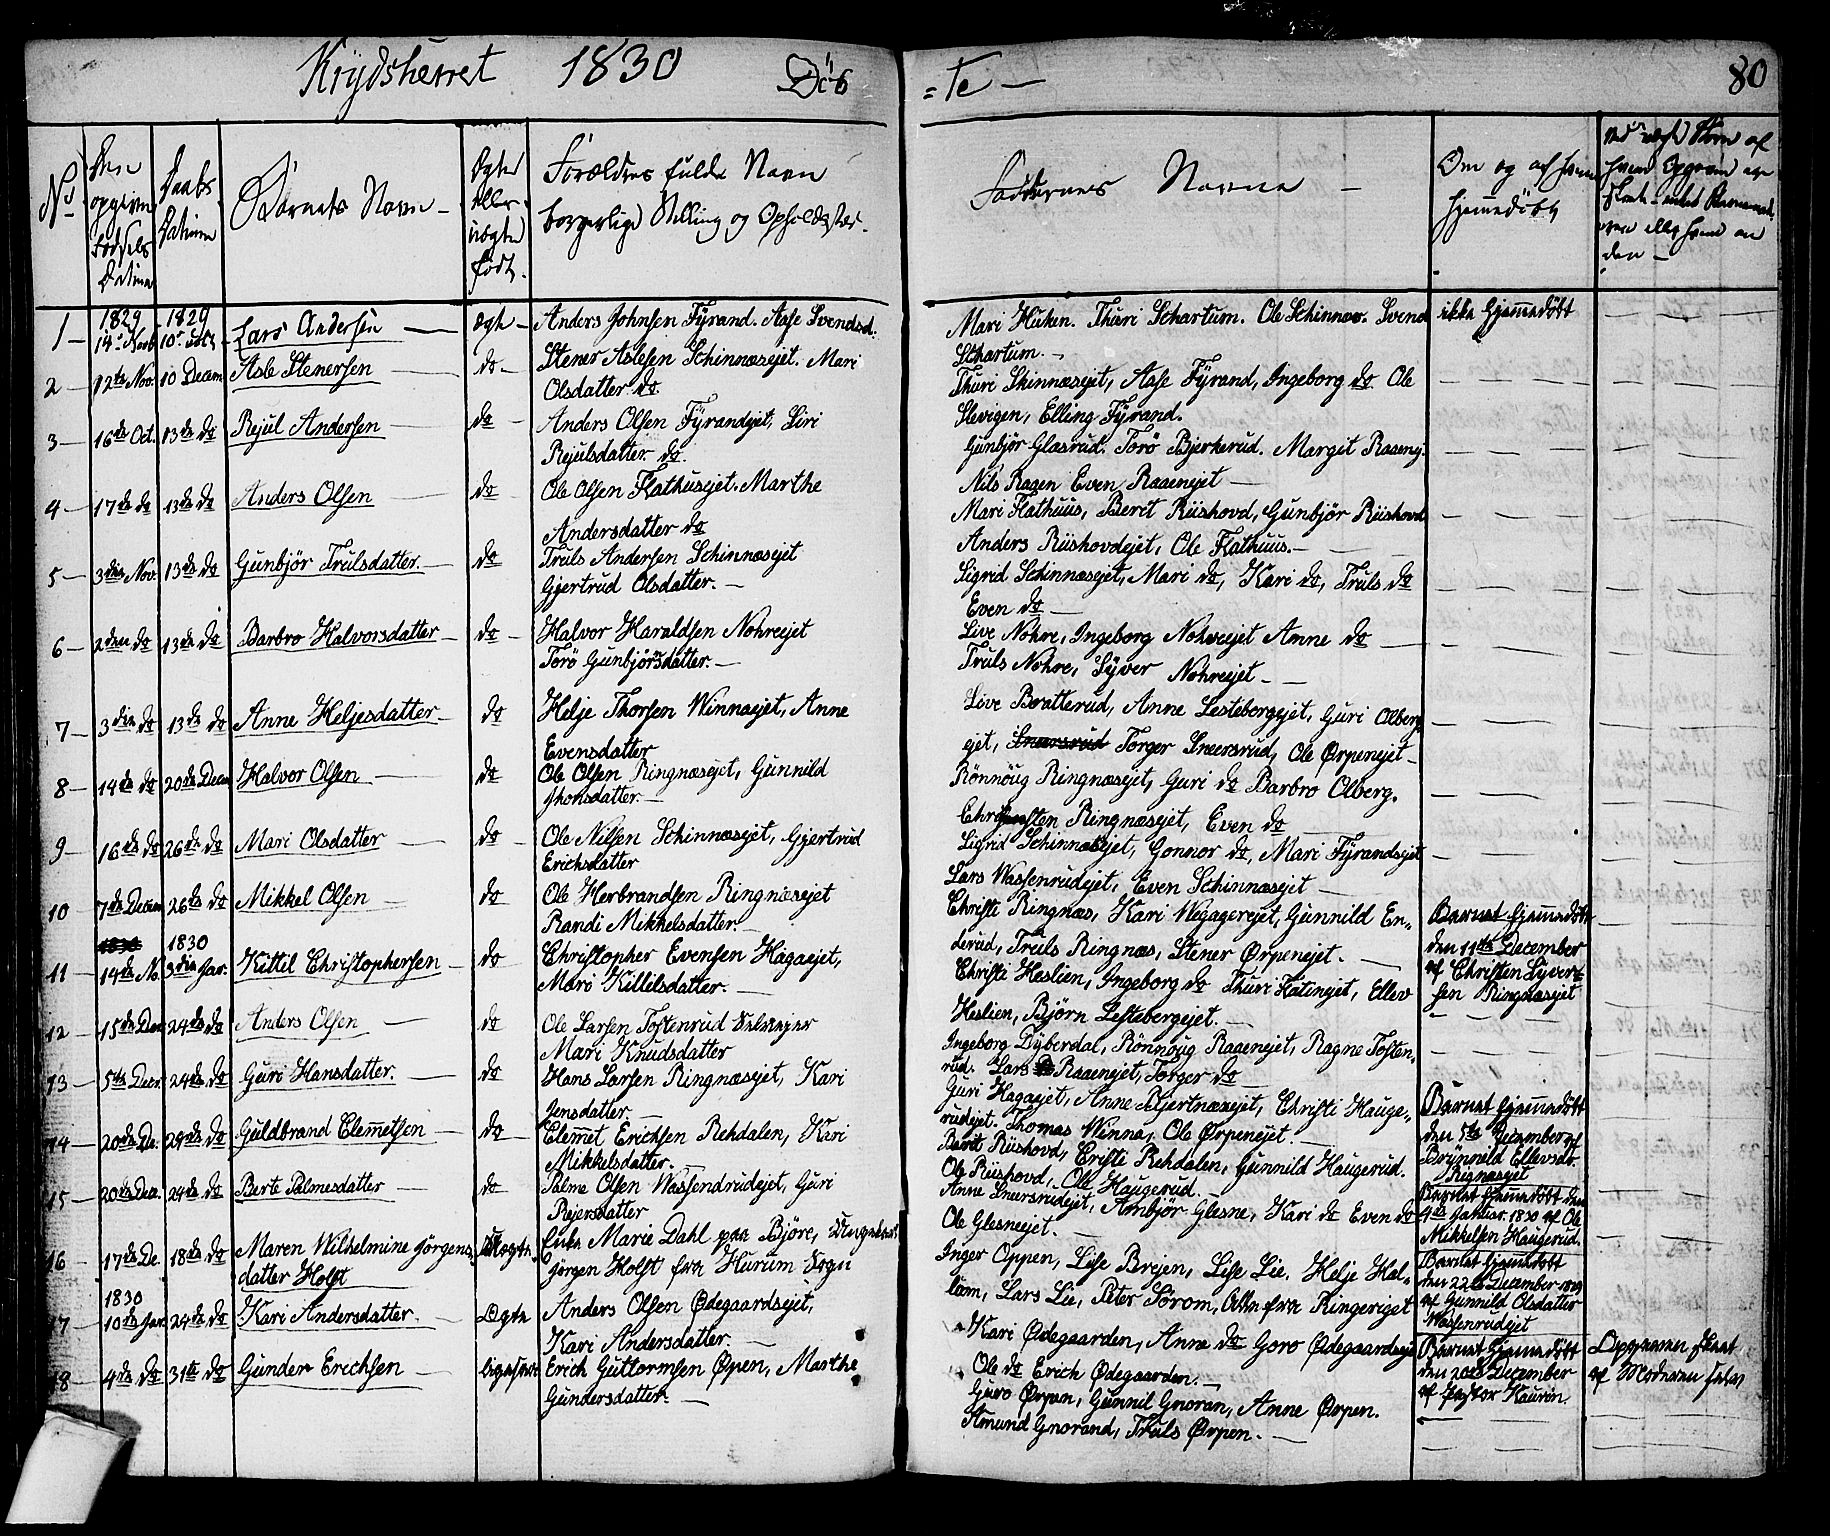 Krydsherret 1830 Döb
=te — 80
No
Den opgivne Fødsels Datum
Daabs Datum
Barnets Navn
Ægte eller uægte født.
Forældres fulde Navn
borgerlige Stilling og Opholdssted.
Faddernes Navne —
Om og af hvem hjemmedöbt
1 — 1829 14de Novb 1829 10de Lars Andersen — Ægte — Anders Johnsen Fÿrand. Aase Svendsd.
2 — 12te Nov. 10 Decem Asle Stenersen — do — Stener Aslesen Schinnæsejet. Mari
Olsdatter do
3 — 16de Oct. 13de do Rejul Andersen — do — Anders Olsen Fÿrandejet, Siri
Rejulsdatter do.
4 — 17de do 13de do Anders Olsen — do — Ole Olsen Flathusejet. Marthe
Andersdatter do
5 — 3die Nov. 13de do Gunbjör Trulsdatter. — do Truls Andersen Schinnæsejet
Gjertrud Olsdatter. —
6 — 2den do 13de do Barbro Halvorsdatter — do — Halvor Haraldsen Nohreejet
Torö Gunbjörsdatter. —
7 — 3die do 13de do Anne Heljesdatter — do Helje Thorsen Winnaejet, Anne
Evensdatter
8 — 14de do 20de Decem Halvor Olsen — do Ole Olsen Ringnæsejet, Gunnild
Jhonsdatter. —
9 — 16de do 26de do Mari Olsdatter — do — Ole Nilsen Schinnæsejet, Gjertrud
Erichsdatter
10 — 7de Decem 26de do Mikkel Olsen — do Ole Herbrandsen Ringnæsejet
Randi Mikkelsdatter. —
1830 1830
11 — 14de No. 3die Jan. Kittil Christophersen — do — Christopher Evensen Hagaejet,
Mari Kittilsdatter. —
12 — 15de Dec 24de do Anders Olsen — do Ole Larsen Tostenrud Selvejer
Mari Knudsdatter
13 — 5te Decr. 24de do Guri Hansdatter. — do Hans Larsen Ringnæsejet, Kari
Jensdatter. —
14 — 20de De. 24de do Guldbrand Clemetsen — do — Clemet Erichsen Rehdalen, Kari
Mikkelsdatter. —
15 — 20de Dec. 24de do Berte Palmesdatter — do Palme Olsen Wassendrudejet, Guri
Rejersdatter
16 17de De. 18de do Maren Wilhelmine Jörgens Uægte Marie Dahl paa Björe,
datter Holst Jörgen Holst fra Hurum Sogn
1830
17 — 10de Jan. 24de do Kari Andersdatter. — Ægte Anders Olsen Ödegaardsejet,
Kari Andersdatter —
18 — 4de do 31te do Gunder Erichsen — ligesaa Erich Guttormsen Öpen, Marthe
Gundersdatter. —
Mari Huken. Thuri Schartum. Ole Schinnes. Svend ikke hjemmedöbt
Schartum. —
Thuri Skinnæsejet, Aase Fÿrand, Ingeborg do Ole
Slevigen, Elling Fÿrand.
Gunbjör Glasrud. Torö Bjerkerud. Margit Raaeng.
Nils Ragen Even Raaenejet —
Mari Flathuus, Berit Riishovd, Gunbjör Riishovd
Anders Riishovdejet, Ole Flathuus. —
Sigrid Schinnæsejet, Mari do, Kari do, Truls do
Even do —
Live Nohre, Ingeborg Nohreejet Anne do —
Truls Nohre, Syver Nohreejet —
Live Bratterud, Amne Lesteborgejet, Guri Olberg
ejet, Sneersrud Torger Sneersrud, Ole Ørpenejet —
Rönnöug Ringnæsejet, Guri do Barbro Olberg.
Christen Ringnæsejet, Even do —
Sigrid Schinnæsejet, Gonnor do, Mari Fÿrandsejet
Lars Wassenrudejet, Even Schinnæsejet —
Christi Ringnæs, Kari Wegagerejet, Gunnild En=
derud, Truls Ringnæs, Stener Ørpenejet. —
Christi Heslien, Ingeborg do Thuri Flatinejet, Ellev
Heslien, Björn Lesteberg­ejet. —
Ingeborg Dyberdal, Rönnoug Raaenejet, Ragne Tosten=
rud. Lars Raaenejet, Torger do —
Guri Hagaejet, Anne Bjertnæsejet, Christi Hauge=
rudejet. Thomas Winna, Ole Ørpenejet. —
Berit Riishovd, Cristi Rehdalen, Gunnild Haugerud.
Ole Riishovd, Ole Haugerud. —
Anne Sneersrudejet, Ambjör Glesne, Kari do Even do
Ole Glesneejet. —
Inger Oppen, Lise Brejen, Lise Lie. Helje Hal=
löem, Lars Lie, Peter Sörom, alle fra Ringeriget
Kari Ødegaarden, Anne do Goro Ødegaardsejet
Ole do Erich Ødegaarden. —
Guro Ørpen, Gunnil Gnoran, Anne Ørpen.
Amund Gnorand, Truls Ørpen. —
Barnet hjemmedöbt
den 11te December
af Christen Syvert=
sen Ringnæsejet
Barnet hjemmedöbt
den 5te December af
Brynneld Ellevsdr.
Rignæsejet
Barnet hjemmedöbt den
4de Januar 1830 af Ole
Mikkelsen Haugerud.
Barnet hjemmedöbt
den 22de December 1829
af Gunnild Olsdatter
Wassenrudejet
Barnet hjemmedöbt
den 20de December
af Pastor Kaurin.
Opgivelsen skeet
af Moderen